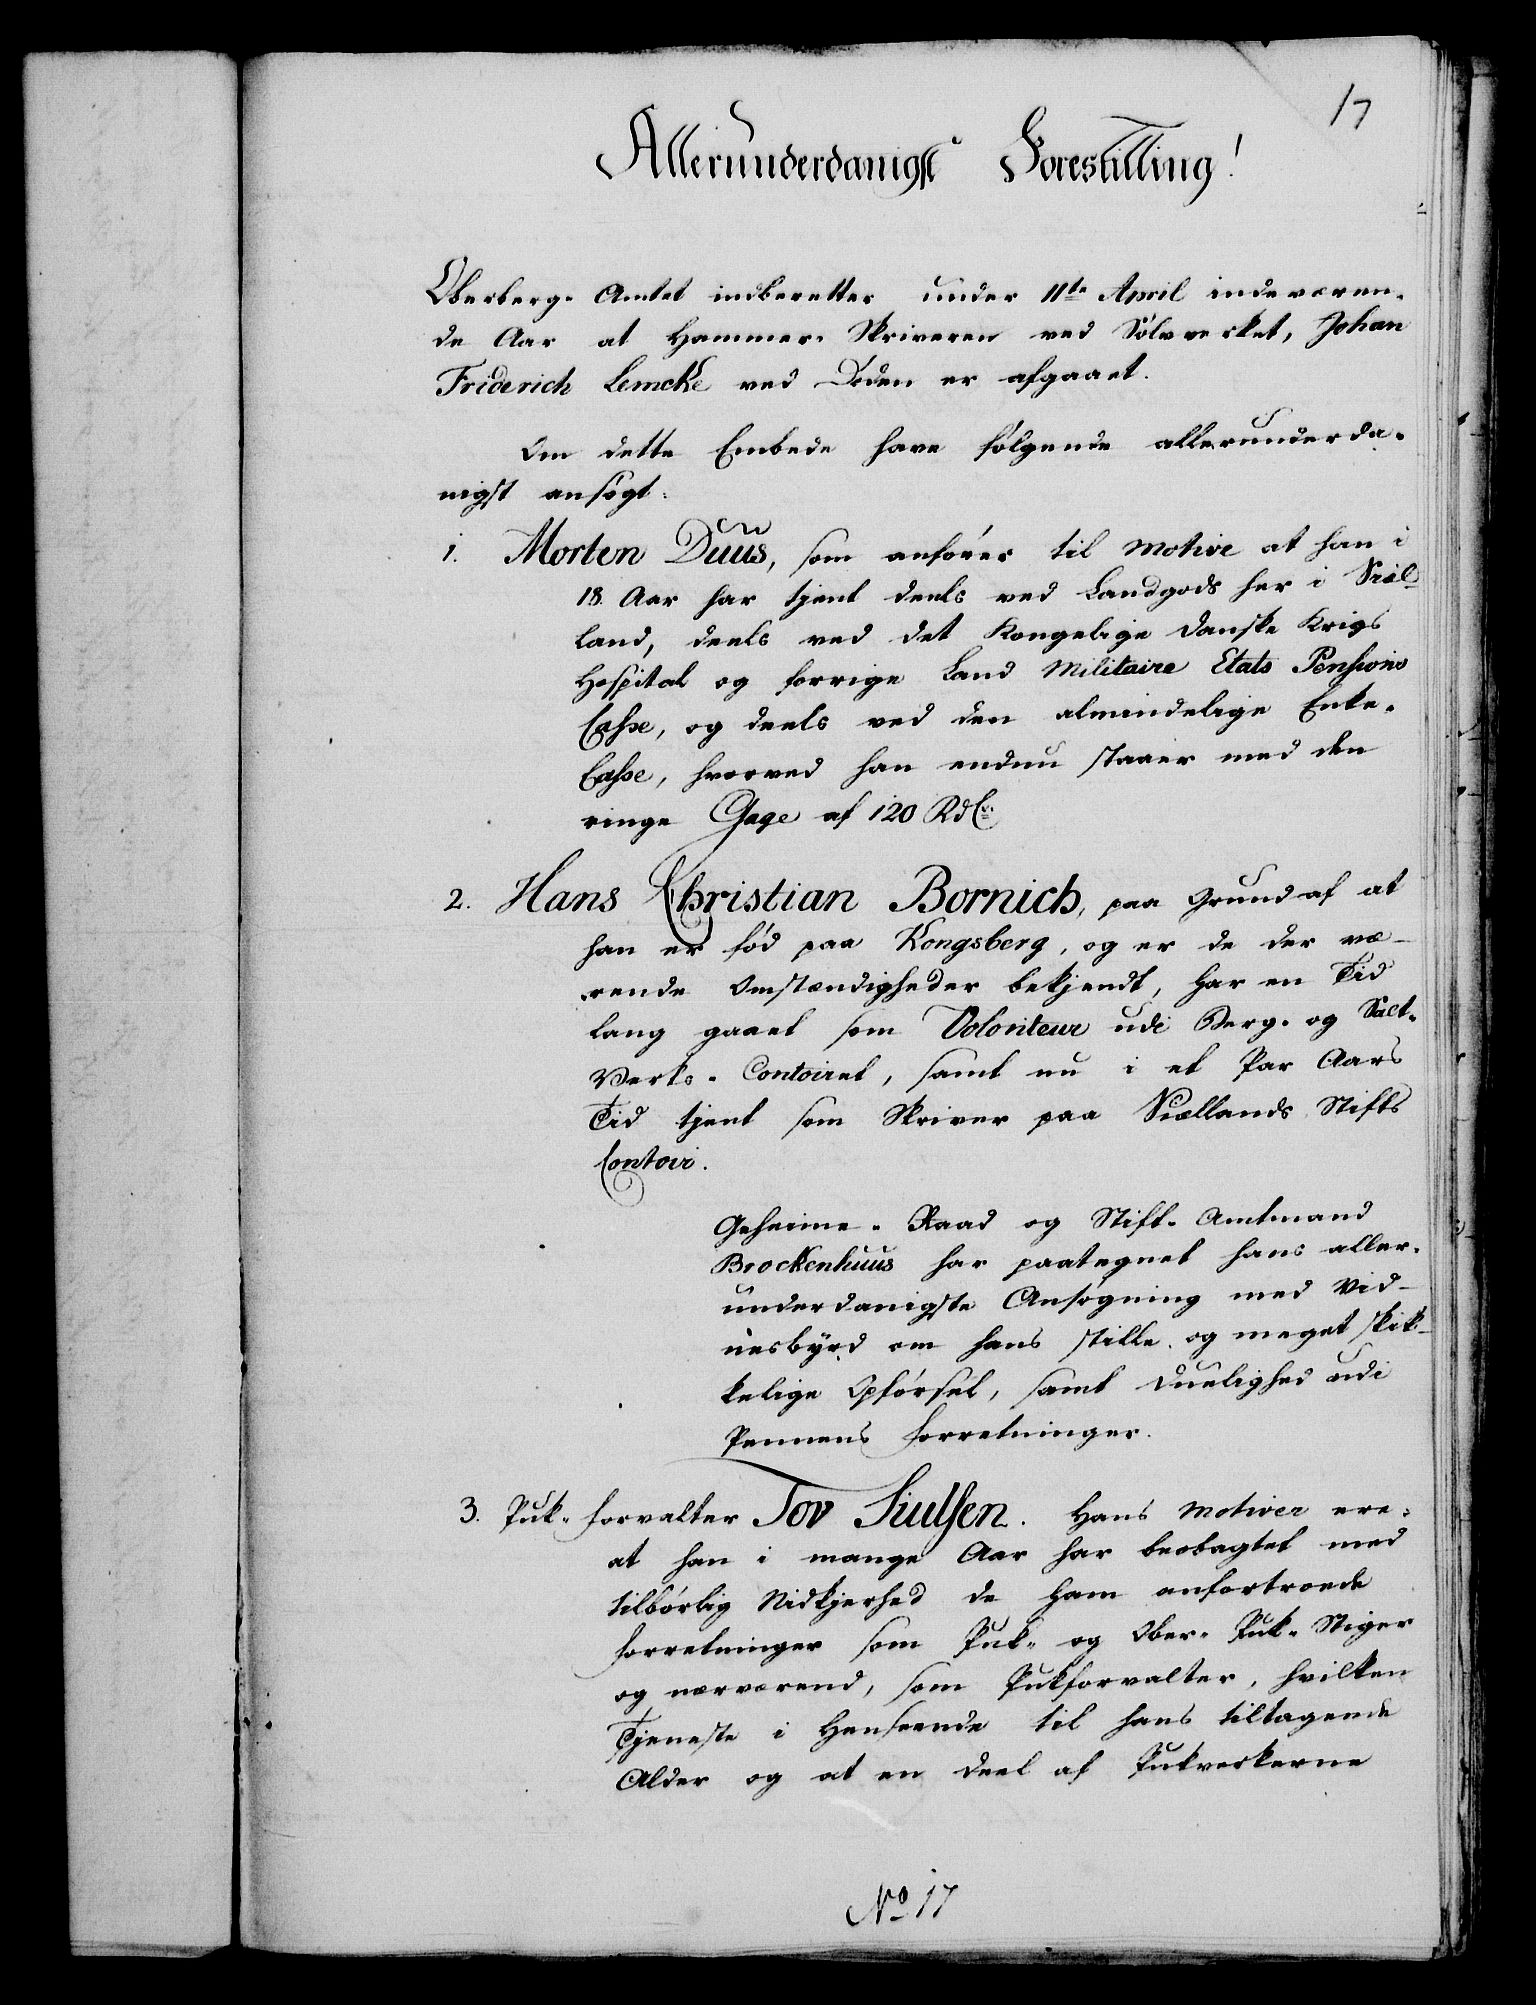 17
Allerunderdanigst Forestilling!
Oberberg-Amtet indberetter under 11te April indeværen-
de Aar at Hammer-Skriveren ved Sølvverket, Johan
Friderich Lemcke ved Døden er afgaaet.
Om dette Embede have følgende allerunderda-
nigst ansøgt:
1. Morten Duus, som anfører til Motive at han i
18 Aar har tjent deels ved Landgods her i Siæl-
land, deels ved det Kongelige Danske Krigs
Hospital og forrige Land Militaire Etats Pensions
Casse, og deels ved den almindelige Enke-
Casse, hvorved han endnu staaer med den
ringe Gage af 120 Rd
2. Hans Christian Bornich, paa Grund af at
han er fød paa Kongsberg, og er de der væ-
rende Omstændigheder bekjendt, har en Tid
lang gaaet som Volonteur udi Berg- og Salt-
Verks-Contoiret, samt nu i et Par Aars
Tid tjent som Skriver paa Siællands Stifts
Contoir.
Geheime-Raad og Stift-Amtmand
Brockenhuus har paategnet hans aller-
underdanigste Ansøgning med Vid-
nesbyrd om hans stille og meget skik-
kelige Opførsel, samt Duelighed udi
Pennens Forretninger.
3. Puk-forvalter Tov Siulsen. Hans Motiver ere:
at han i mange Aar har beobagtet med
tilbørlig Nidkjerhed de ham anfortroede
Forretninger som Puk- og Ober-Puk-Stiger
og nærværend, som Pukforvalter, hvilken
Tjeneste i Henseende til hans tiltagende
Alder og at en Deel af Pukverkerne
No 17